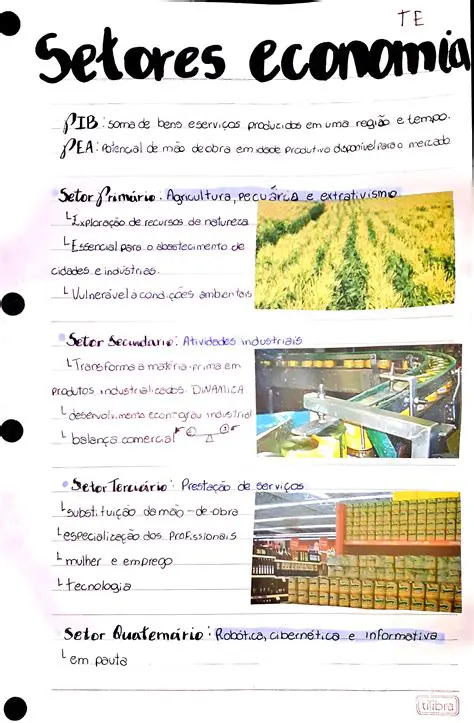 TE
Setores economia
PIB: soma de bens e serviços produzidos em uma região e tempo.
PEA: Potencial de mão de obra em idade produtiva disponível para o mercado
Setor Primário: Agricultura, pecuária e extrativismo
Exploração de recursos da natureza
Essencial para o abastecimento de
cidades e indústrias.
Vulnerável a condições ambientais
Setor Secundário: Atividades industriais
Transforma a matéria-prima em
produtos industrializados. DINÂMICA
desenvolvimento econ=grau industrial
balança comercial
Setor Terciário: Prestação de serviços
substituição da mão-de-obra
especialização dos profissionais
mulher e emprego
tecnologia
Setor Quaternário: Robótica, cibernética e informativa
em pauta
tilibra